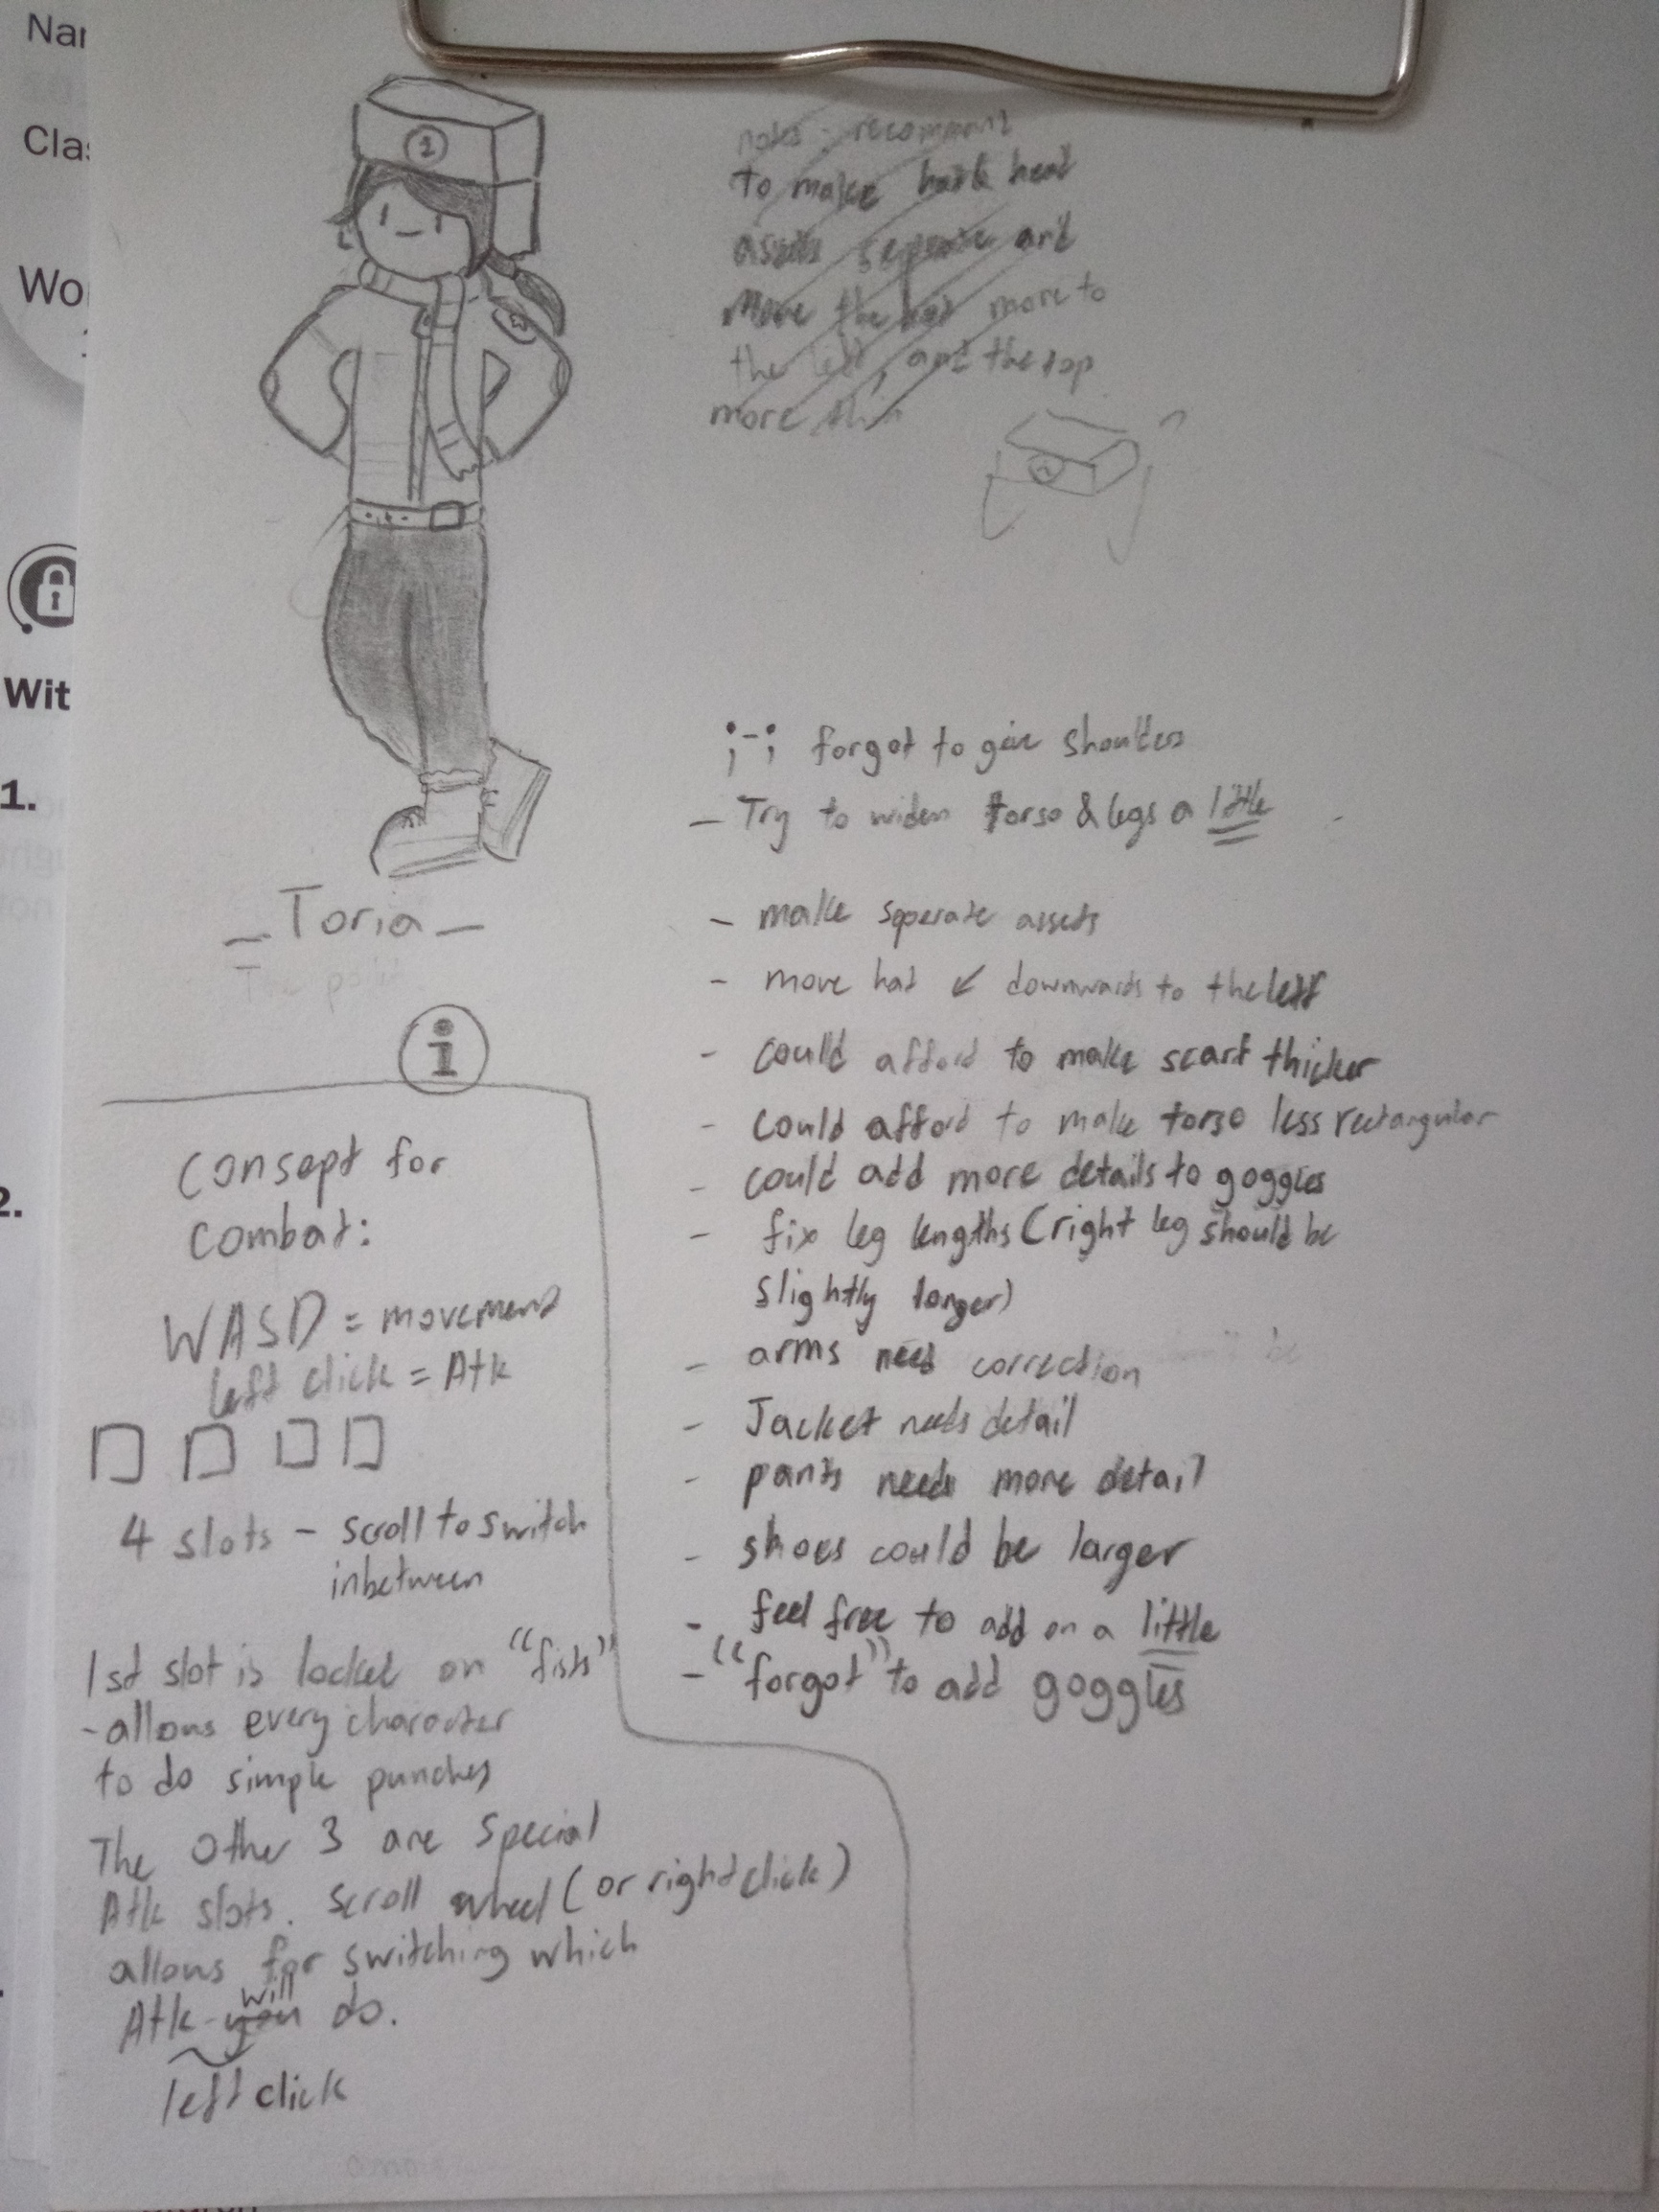 Wit
1.
2.
1
notes: recommend
to make hat & head
assets seperate and
Move the hat more to
the left, and the top
more thin
;-; forgot to give shoulders
- Try to widen torso & legs a little
- make seperate assets
- move hat ↙ downwards to the left
- could afford to make scarf thicker
- could afford to make torso less rectangular
- could add more details to goggles
- fix leg lengths (right leg should be
slightly longer)
- arms need correction
- Jacket needs detail
- pants needs more detail
- shoes could be larger
- feel free to add on a little
- "forgot" to add goggles
_Toria_
i
Consept for
combat:
WASD = movement
left click = Atk
4 slots - scroll to switch
inbetween
1st slot is locked on "fists"
- allows every character
to do simple punches
The other 3 are special
Atk slots. Scroll wheel (or right click)
allows for switching which
Atk you will do.
left click